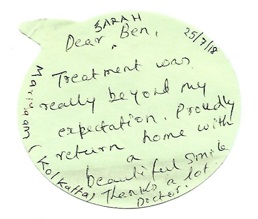 SARAH
Dear Ben,
25/7/18
Treatment was
really beyond my
expectation. Proudly
return home with
a
beautiful smile
Thanks a lot
Docter.
(Kolkatta)